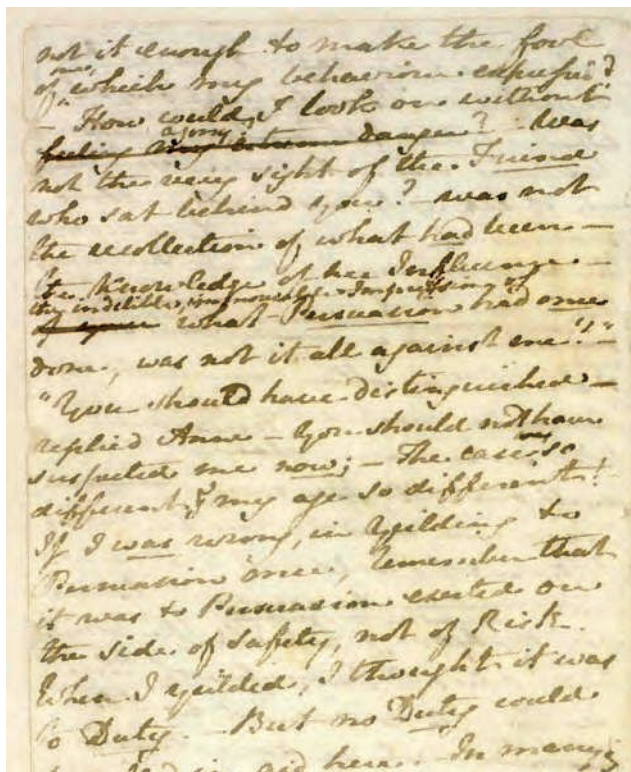 not it enough to make the fool
of me which my behaviour expressed?
- How could I look on without
agony
feeling ? - Was
not the very sight of the Friend
who sat behind you? - was not
the recollection of what had been -
the knowledge of her Influence -
the indelible, immoveable Impression of
what Persuasion had once
done, was not it all against me?" -
"You should have distinguished -
replied Anne - You should not have
suspected me now; - The case so
different, & my age so different!
If I was wrong, in yeilding to
Persuasion once, remember that
it was to Persuasion exerted on
the side of Safety, not of Risk.
When I yeilded, I thought it was
to Duty. - But no Duty could
in aid here. - In marrying